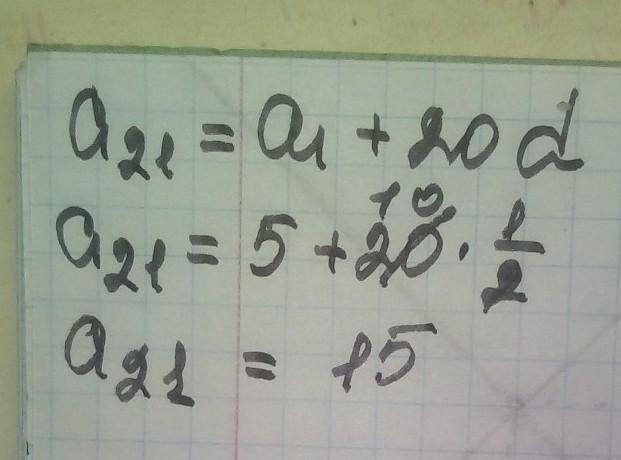 a₂₁ = a₁ + 20 d
10
a₂₁ = 5 + 20 · 1/2
a₂₁ = 15